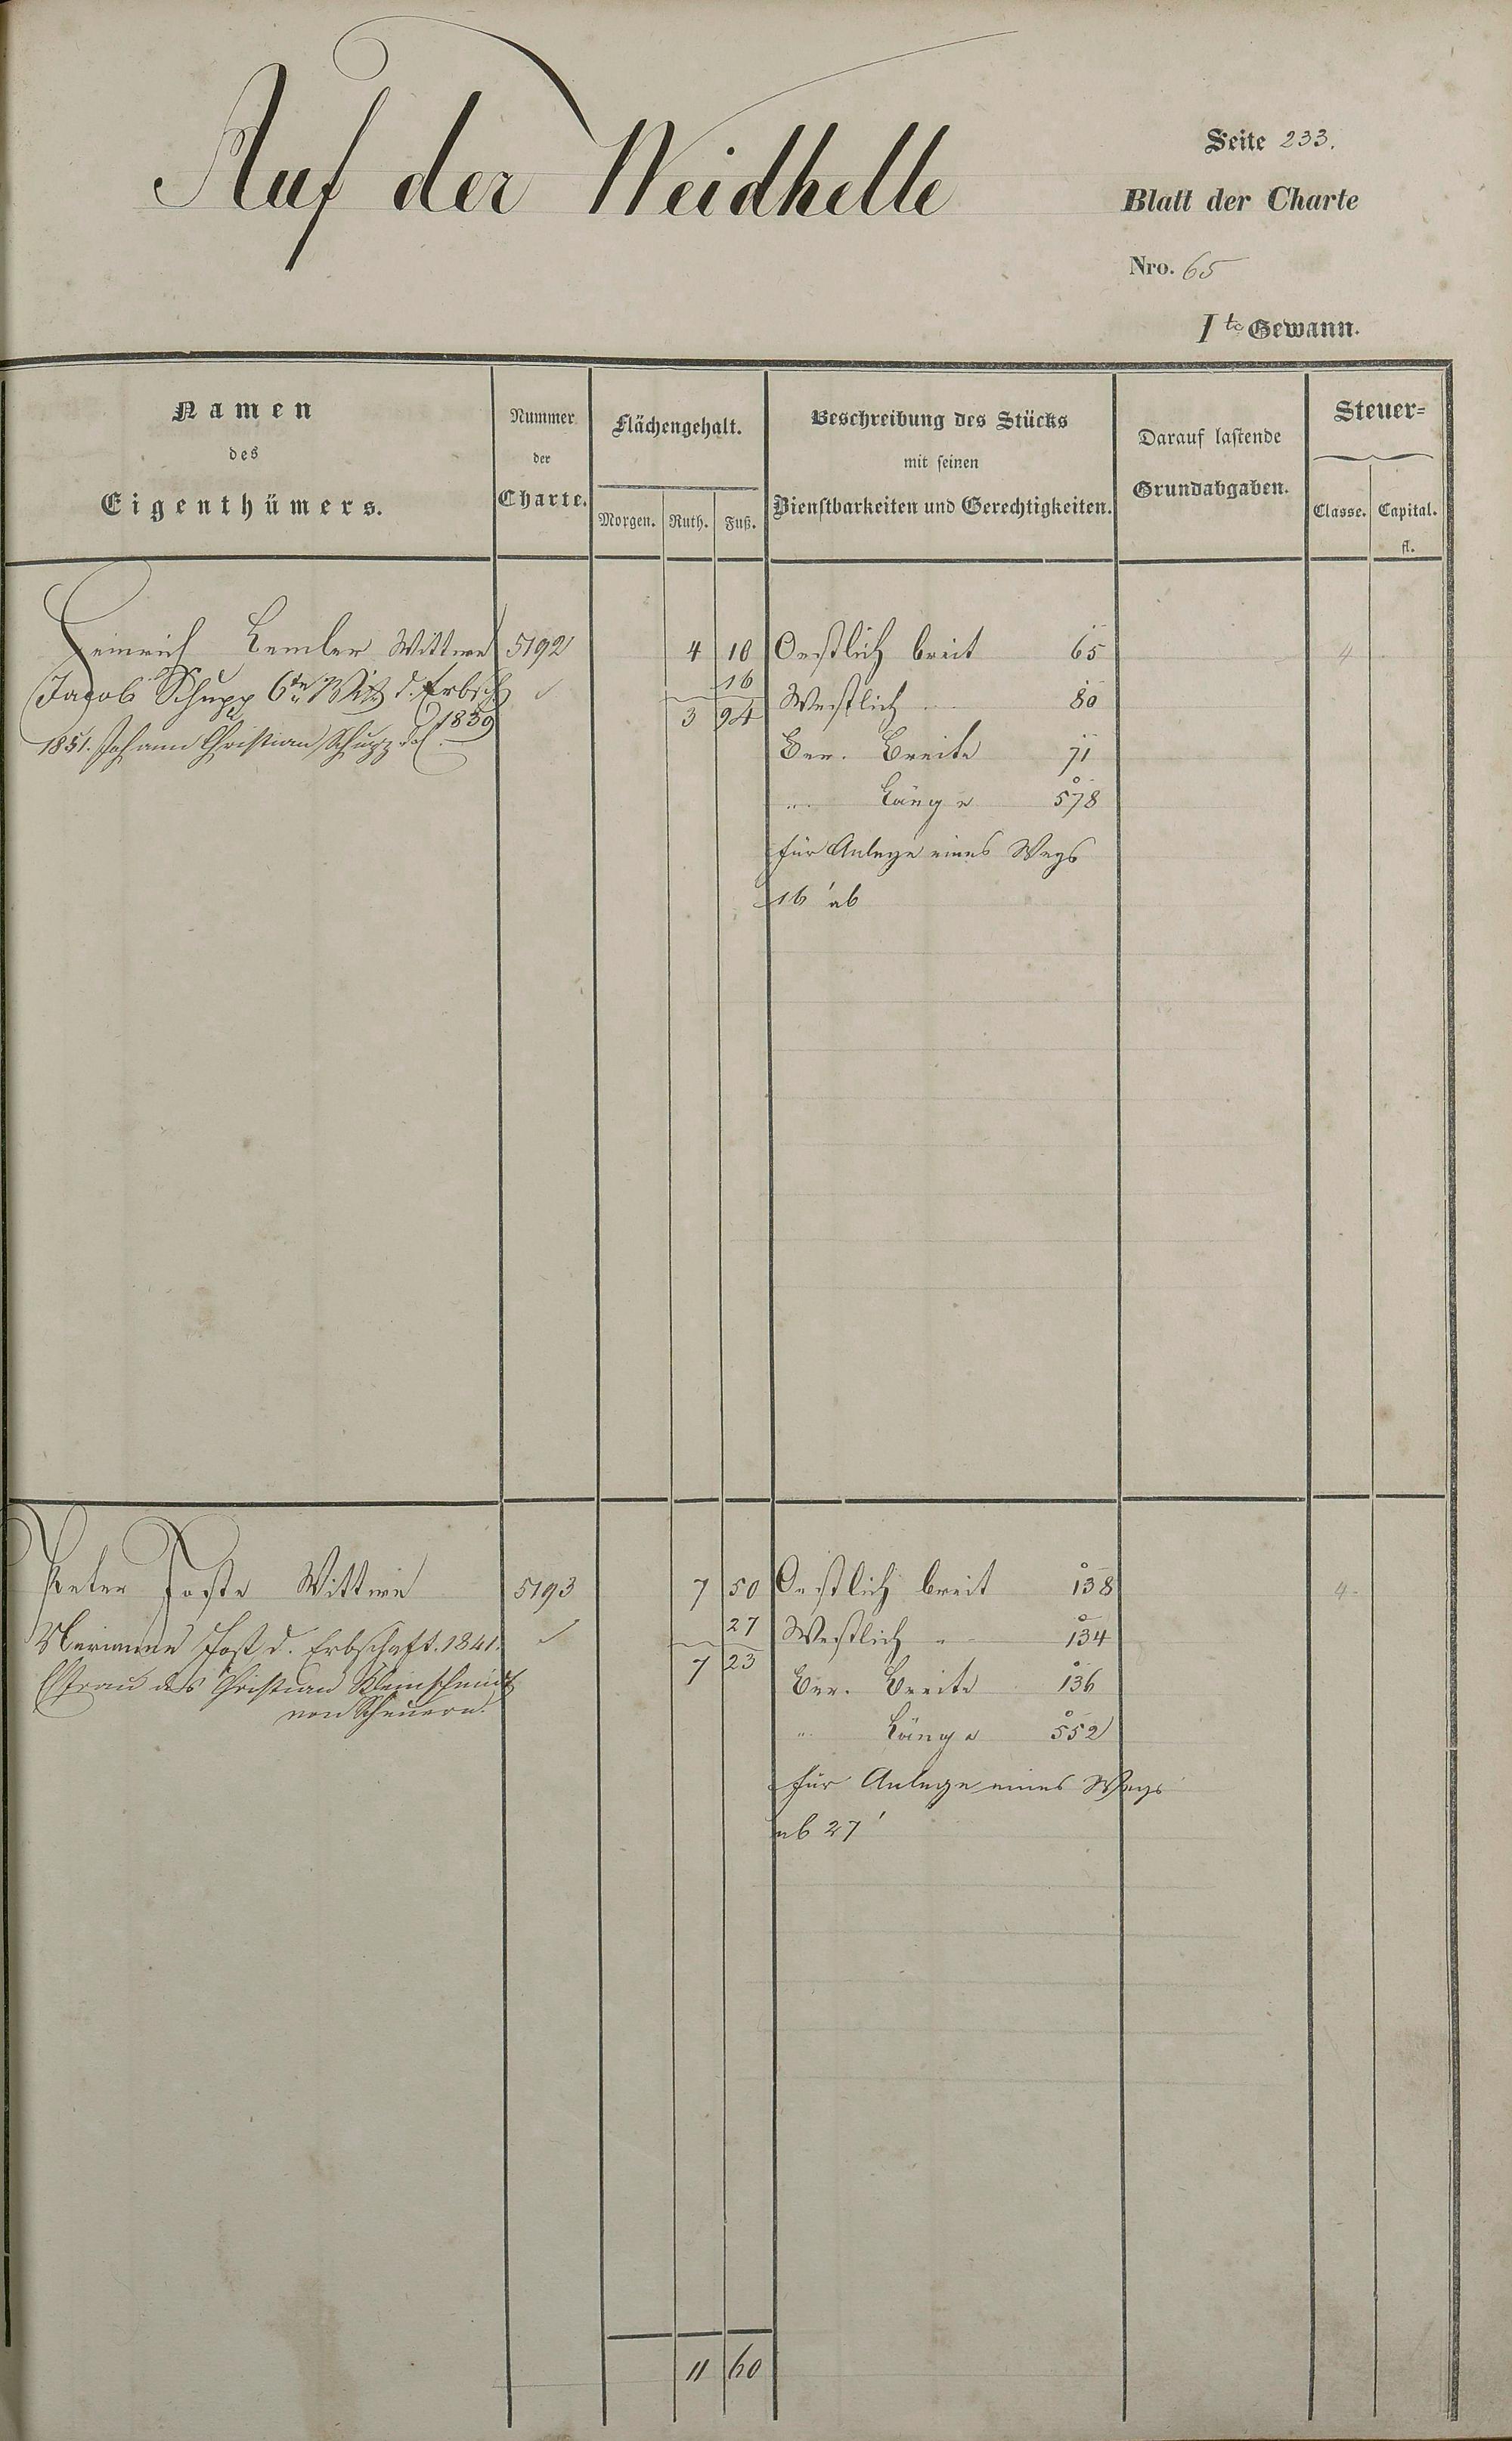 Auf der Weidhelle
Seite 233.
Blatt der Charte
Nro. 65
I te Gewann.
Namen
des
Eigenthümers.
Nummer
der
Charte.
Flächengehalt.
Morgen. Ruth. Fuß.
Beschreibung des Stücks
mit seinen
Dienstbarkeiten und Gerechtigkeiten.
Darauf lastende
Grundabgaben.
Steuer-
Classe. Capital.
fl.
Heinrich Lemler Wittwe 5192 4 10 Oestlich breit 65 4
Jacob Schupp 6te Wtb d. Erbsch 16 Westlich 80
1859 3 94
1851. Johann Christian Schupp
Ver. Breite 71
" Länge 578
für Anlage eines Wegs
16' ab
Peter Joste Wittwe 5193 7 50 Oestlich breit 138 4
Marianne Jost d. Erbschaft. 1841. 27 Westlich " 134
Efrau des Christian Kleinschmidt 7 23 Ver. Breite 136
von Scheuern.
" Länge 552
für Anlage eines Wegs
ab 27'
11 60